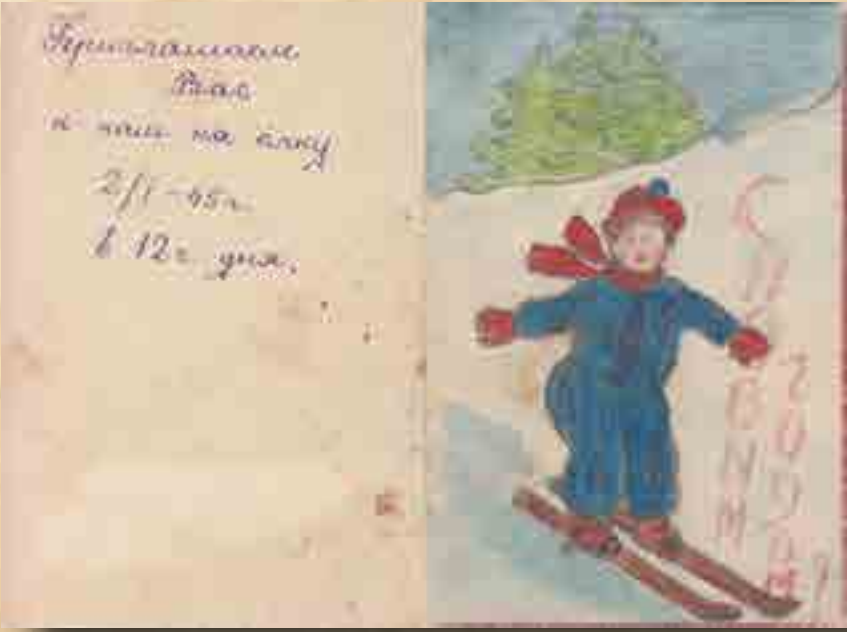 Приглашаем
Вас
к нам на ёлку
2/I-45г.
в 12 ч. дня.
С
Новым
годом!